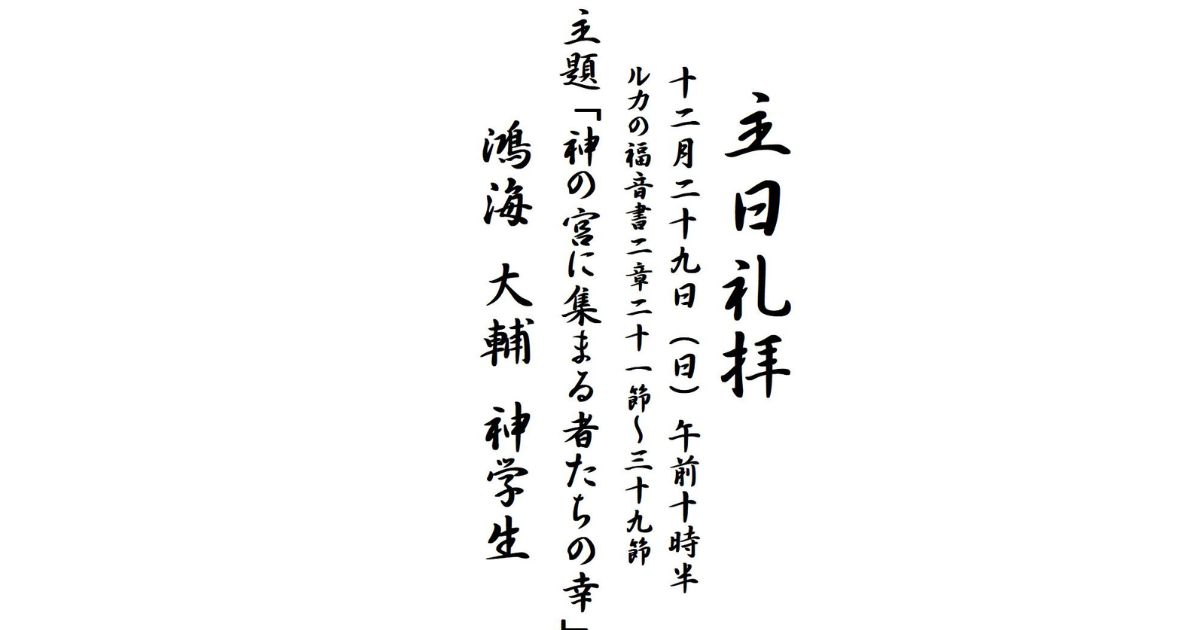 主日礼拝
十二月二十九日(日)午前十時半
ルカの福音書二章二十一節~三十九節
主題「神の宮に集まる者たちの幸」
鴻海 大輔 神学生